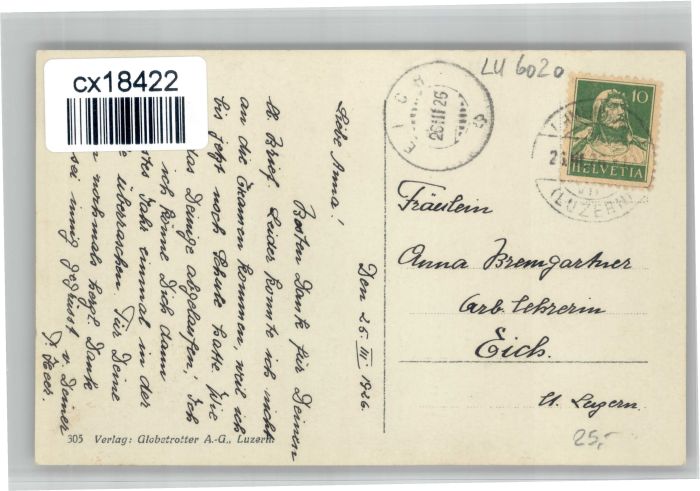 cx18422
LU 6020
EICH
26III26
10
HELVETIA
(LUZERN)
Den 25. III 1926.
Liebe Anna!
Besten Dank für Deinen
Brief. Leider konnte ich nicht
an die Examen kommen, weil ich
bis jetzt noch Schule hatte. Wie
das Deinige abgelaufen? Ich
ich könne Dich dann
Jahr einmal in der
überraschen. Für Deine
nochmals hezl. Dank
sei innig gegrüsst v. Deiner
Fräulein
Anna Bremgartner
Arb. lehrerin
Eich.
Kt. Luzern.
25.-
305 Verlag: Globetrotter A.-G., Luzern